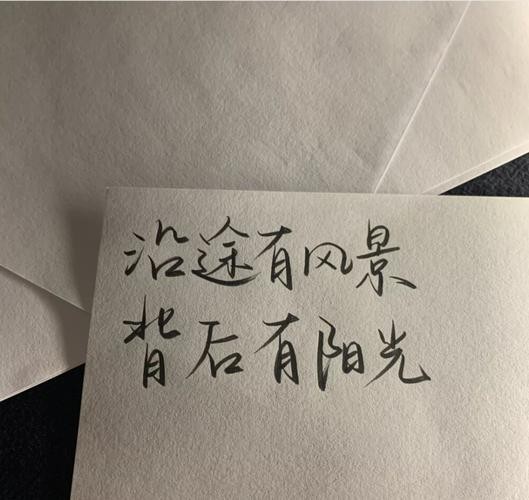 沿途有风景
背后有阳光